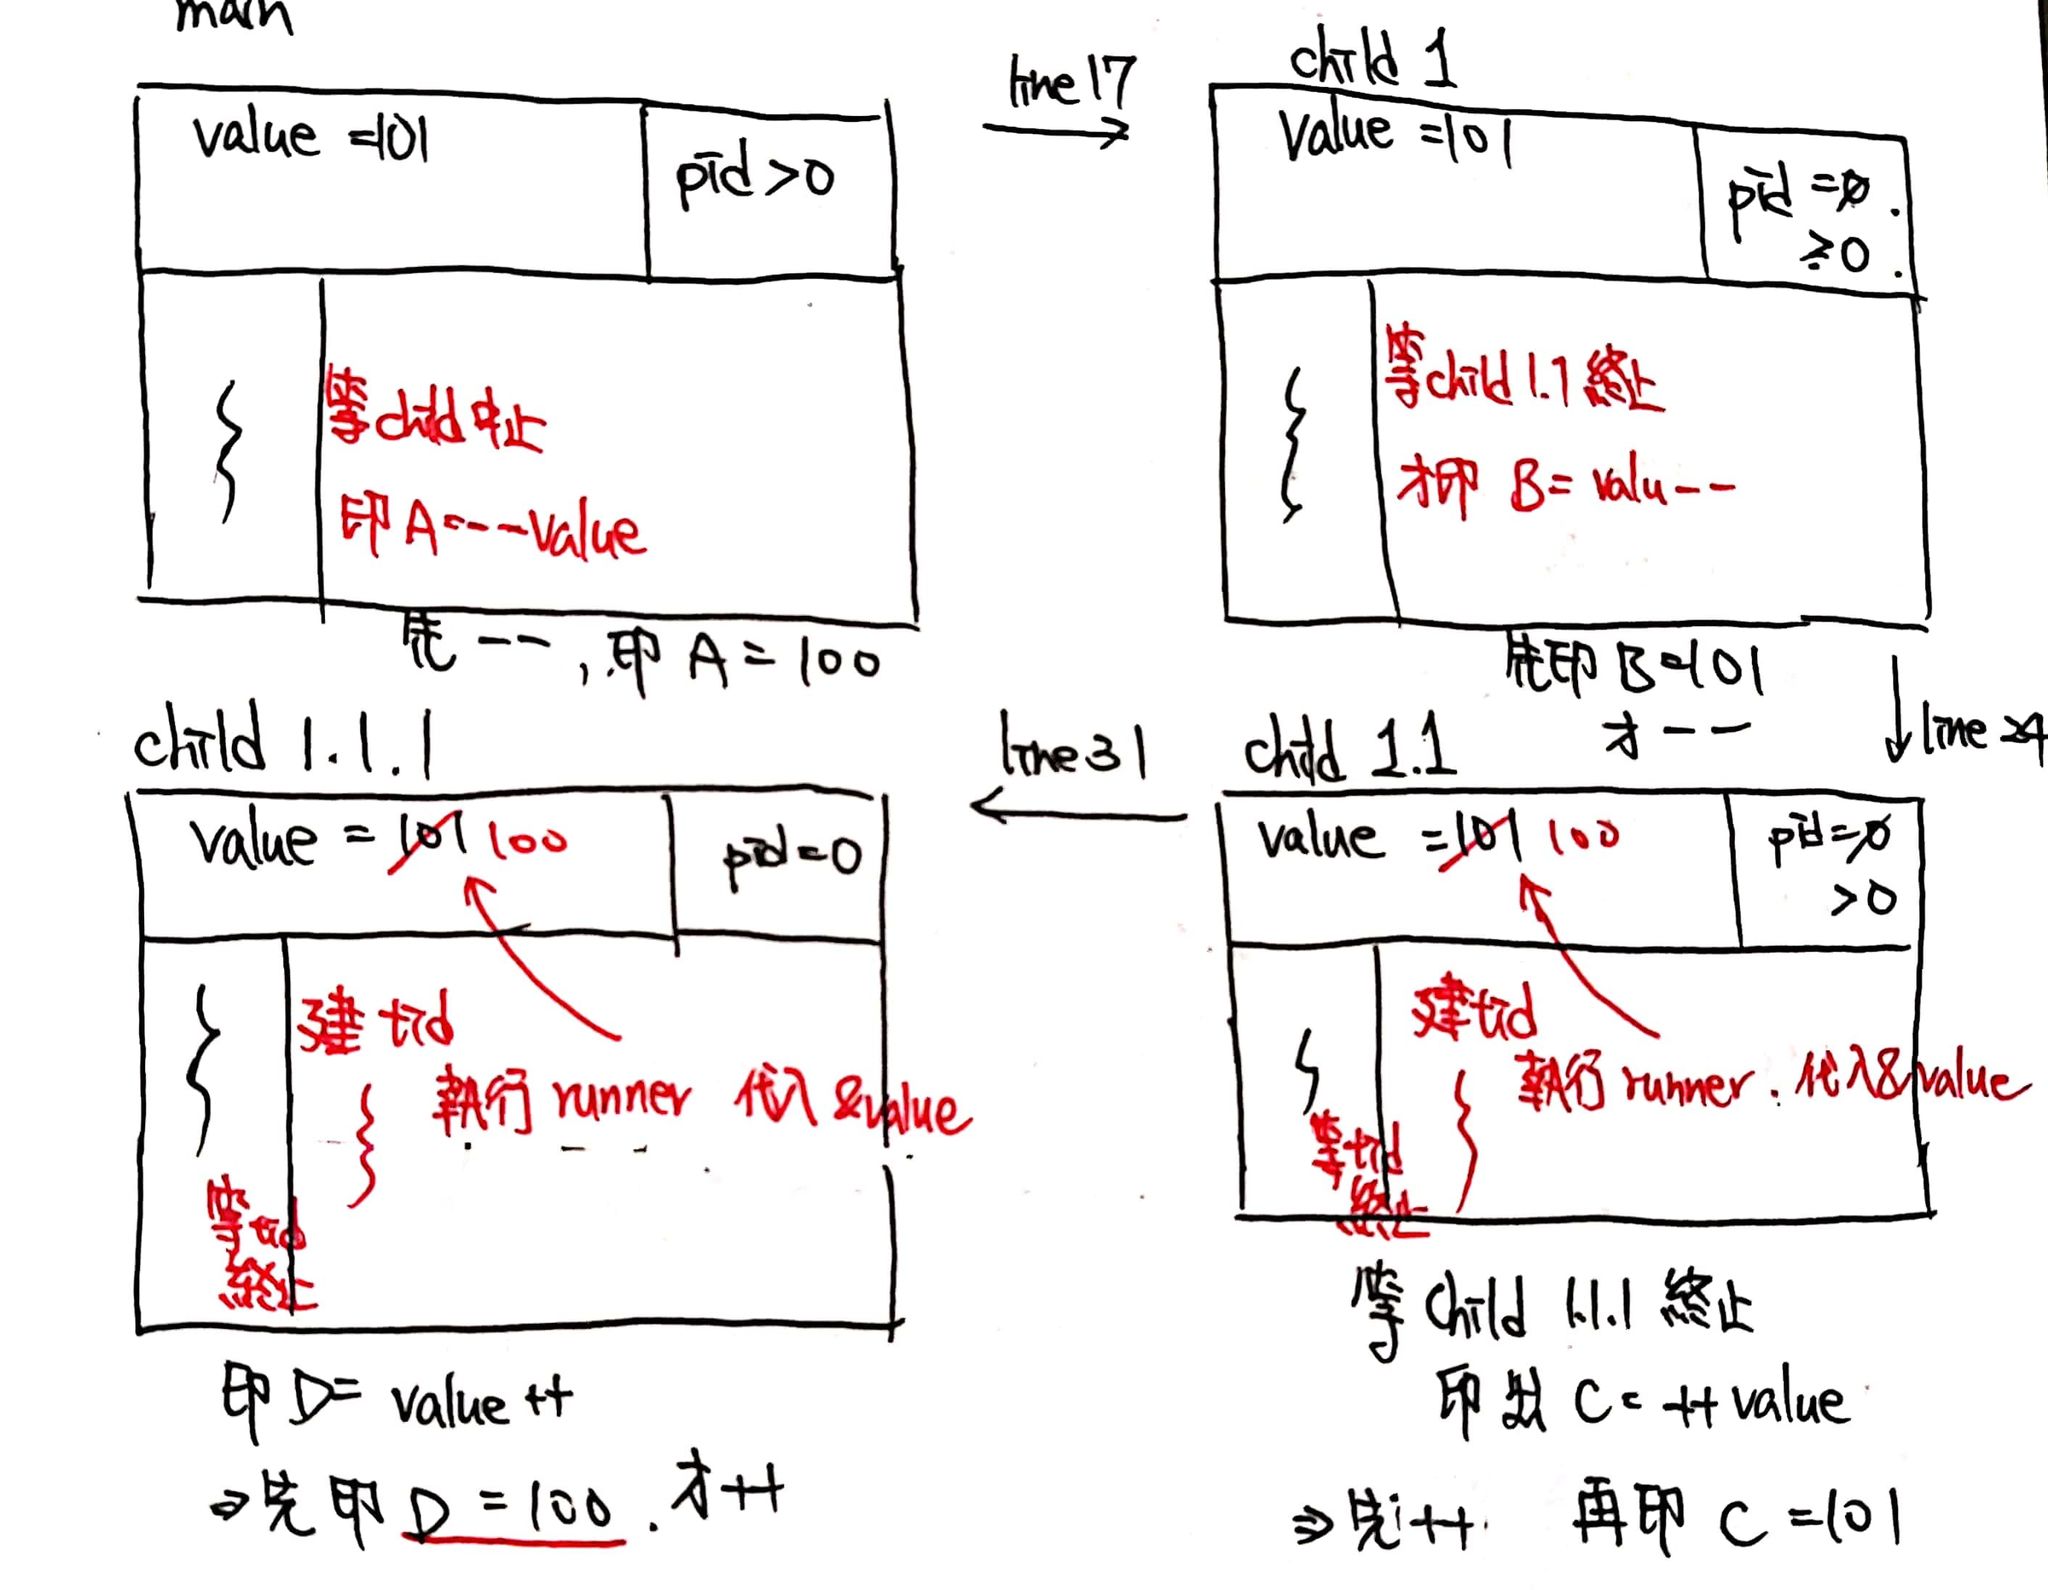 main
value =101
pid >0
等child中止
印 A=--value
先 -- , 印 A = 100
line 17
child 1
value =101
pid =0 .
≥0 .
等child 1.1 終止
才印 B= valu--
先印 B=101
才 --
line 24
child 1.1
value =101 100
pid=0
>0
建tid
執行runner . 代入&value
等tid
終止
等 child 1.1.1 終止
印 C= ++value
⇒先++ 再印 C =101
line 31
child 1.1.1
value = 101 100
pid=0
建 tid
執行 runner 代入 &value
等tid
終止
印 D= value ++
⇒先 印 D =100 . 才++